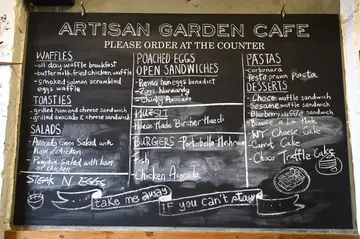 ARTISAN GARDEN CAFE
PLEASE ORDER AT THE COUNTER
WAFFLES
- all day waffle breakfast
- buttermilk fried chicken waffle
- Smoked salmon scrambled
eggs waffle
TOASTIES
- grilled ham and cheese sandwich
- grilled avocado & cheese sandwich
SALADS
Avocado Green Salad with
ham / chicken
Pumpkin Salad with ham
or chicken
STEAK N EGGS
POACHED EGGS
OPEN SANDWICHES
- Parma ham eggs benedict
- Eggs Norway
- Chunky Avocado
MUESLI
House Made Bircher Muesli
BURGERS - Portobello Mushroom
Fish
Chicken Avocado
PASTAS
- Carbonara
- Pesto prawn Pasta
DESSERTS
- Choco waffle sandwich
- Sesame waffle sandwich
- Blueberry waffle
- Brownie
- NY Cheese Cake
- Carrot Cake
- Choco Truffle Cake
take me away
IF you can't stay